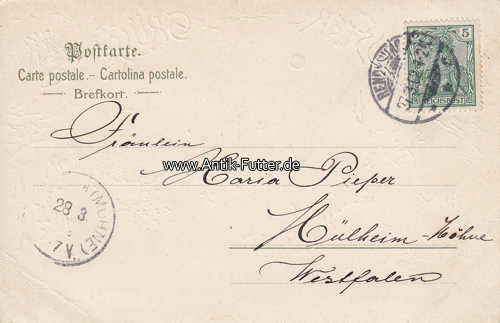 Postkarte.
Carte postale.- Cartolina postale.
Brefkort.
5
REICHSPOST
Fräulein
www.Antik-Futter.de
Maria Pieper
Mülheim-Möhne
Westfalen
(MÖHNE)
28 3
7 V.